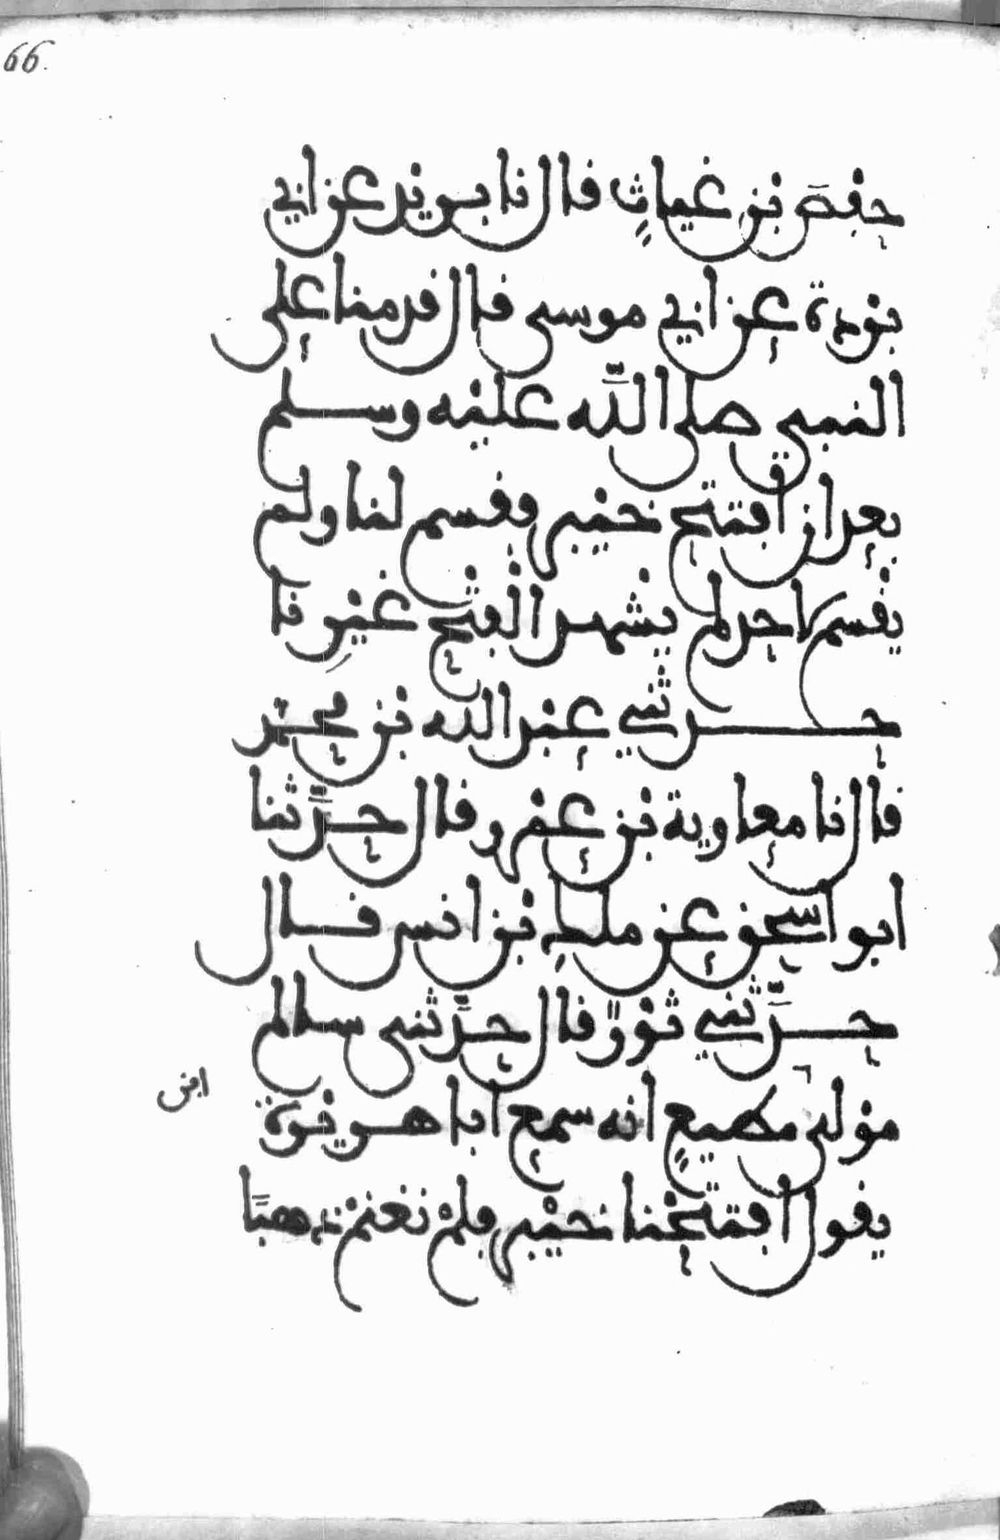 66.
حفص بن غياث قال نا بريد عن ابي
بردة عن ابي موسى قال قدمنا على
النبي صلى اللّه عليه وسلم
بعد ان افتتح خيبر فقسم لنا ولم
يقسم لاحد لم يشهد الفتح غيرنا
حدثني عبد الله بن محمد
قال نا معاوية بن عمرو قال حدّثنا
ابو اسحق عن ملك بن انس قال
حدّثني ثورٌ قال حدّثني سالم
مولى مطيعٍ انه سمع ابا هريرة
ابن
يقول افتتحنا خيبر فلم نغنم ذهبًا